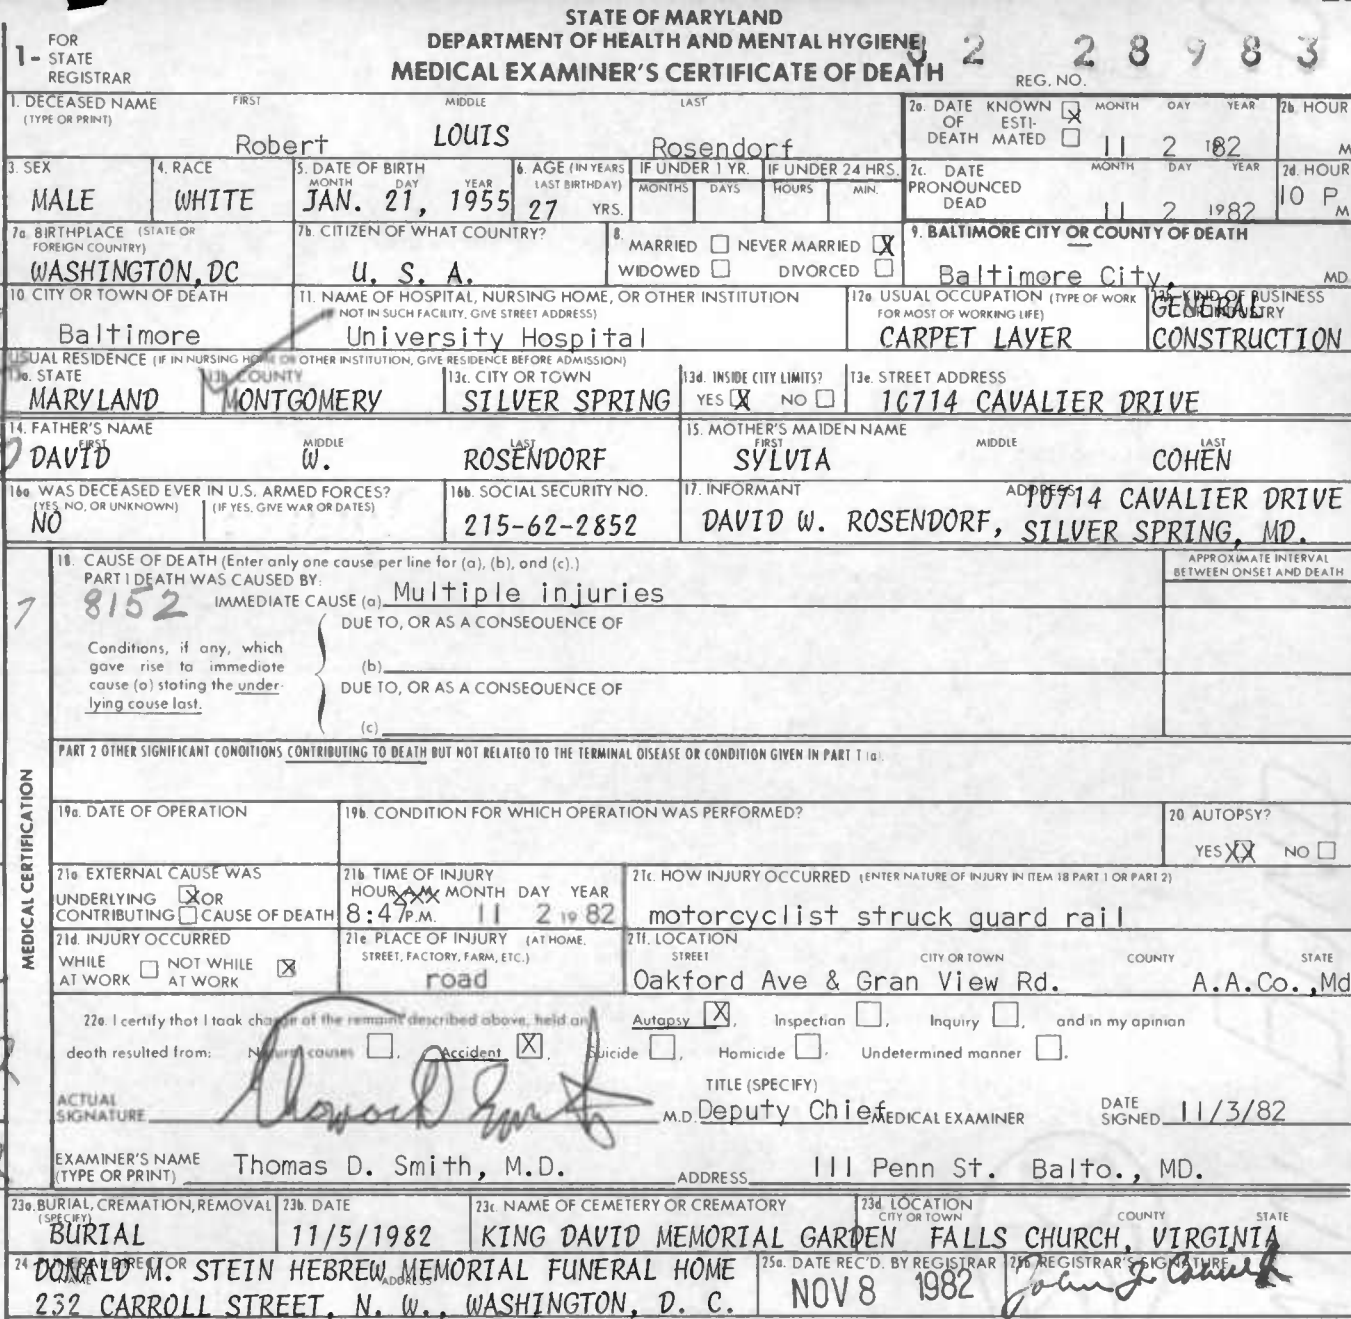 STATE OF MARYLAND
DEPARTMENT OF HEALTH AND MENTAL HYGIENE
MEDICAL EXAMINER'S CERTIFICATE OF DEATH
82 28983
REG. NO.
1- FOR
STATE
REGISTRAR
1. DECEASED NAME FIRST MIDDLE LAST
(TYPE OR PRINT)
Robert LOUIS Rosendorf
2a. DATE KNOWN X MONTH DAY YEAR
OF ESTI-
DEATH MATED 11 2 1982
2b. HOUR
M
3. SEX
MALE
4. RACE
WHITE
5. DATE OF BIRTH
MONTH DAY YEAR
JAN. 21, 1955
6. AGE (IN YEARS
LAST BIRTHDAY)
27 YRS.
IF UNDER 1 YR.
MONTHS DAYS
IF UNDER 24 HRS.
HOURS MIN.
2c. DATE MONTH DAY YEAR
PRONOUNCED
DEAD 11 2 1982
2d. HOUR
10 P M
7a. BIRTHPLACE (STATE OR
FOREIGN COUNTRY)
WASHINGTON, DC
7b. CITIZEN OF WHAT COUNTRY?
U. S. A.
8.
MARRIED NEVER MARRIED X
WIDOWED DIVORCED
9. BALTIMORE CITY OR COUNTY OF DEATH
Baltimore City, MD.
10 CITY OR TOWN OF DEATH
Baltimore
11. NAME OF HOSPITAL, NURSING HOME, OR OTHER INSTITUTION
(IF NOT IN SUCH FACILITY, GIVE STREET ADDRESS)
University Hospital
12a USUAL OCCUPATION (TYPE OF WORK
FOR MOST OF WORKING LIFE)
CARPET LAYER
12b. KIND OF BUSINESS
OR INDUSTRY
GENERAL
CONSTRUCTION
USUAL RESIDENCE (IF IN NURSING HOME OR OTHER INSTITUTION, GIVE RESIDENCE BEFORE ADMISSION)
13a. STATE
MARYLAND
13b. COUNTY
MONTGOMERY
13c. CITY OR TOWN
SILVER SPRING
13d. INSIDE CITY LIMITS?
YES X NO
13e. STREET ADDRESS
10714 CAVALIER DRIVE
14. FATHER'S NAME
FIRST MIDDLE LAST
DAVID W. ROSENDORF
15. MOTHER'S MAIDEN NAME
FIRST MIDDLE LAST
SYLVIA COHEN
16a WAS DECEASED EVER IN U.S. ARMED FORCES?
(YES, NO, OR UNKNOWN) (IF YES, GIVE WAR OR DATES)
NO
16b. SOCIAL SECURITY NO.
215-62-2852
17. INFORMANT ADDRESS
DAVID W. ROSENDORF, 10714 CAVALIER DRIVE
SILVER SPRING, MD.
18. CAUSE OF DEATH (Enter only one cause per line for (a), (b), and (c).)
PART I DEATH WAS CAUSED BY:
8152
IMMEDIATE CAUSE (a) Multiple injuries
APPROXIMATE INTERVAL
BETWEEN ONSET AND DEATH
DUE TO, OR AS A CONSEQUENCE OF
Conditions, if any, which
gave rise to immediate
cause (a) stating the under-
lying cause last.
(b)
DUE TO, OR AS A CONSEQUENCE OF
(c)
PART 2 OTHER SIGNIFICANT CONDITIONS CONTRIBUTING TO DEATH BUT NOT RELATED TO THE TERMINAL DISEASE OR CONDITION GIVEN IN PART 1 (a).
MEDICAL CERTIFICATION
19a. DATE OF OPERATION
19b. CONDITION FOR WHICH OPERATION WAS PERFORMED?
20 AUTOPSY?
YES XX NO
21a EXTERNAL CAUSE WAS
UNDERLYING X OR
CONTRIBUTING CAUSE OF DEATH
21b TIME OF INJURY
HOUR A.M. MONTH DAY YEAR
8:47 P.M. 11 2 1982
21c. HOW INJURY OCCURRED (ENTER NATURE OF INJURY IN ITEM 18 PART 1 OR PART 2)
motorcyclist struck guard rail
21d. INJURY OCCURRED
WHILE NOT WHILE X
AT WORK AT WORK
21e PLACE OF INJURY (AT HOME,
STREET, FACTORY, FARM, ETC.)
road
21f. LOCATION
STREET CITY OR TOWN COUNTY STATE
Oakford Ave & Gran View Rd. A.A.Co.,Md
22a. I certify that I took charge of the remains described above, held an Autopsy X, Inspection , Inquiry , and in my opinion
death resulted from: Natural causes , Accident X, Suicide , Homicide , Undetermined manner .
ACTUAL
SIGNATURE M.D.
TITLE (SPECIFY)
Deputy Chief MEDICAL EXAMINER
DATE
SIGNED 11/3/82
EXAMINER'S NAME
(TYPE OR PRINT) Thomas D. Smith, M.D. ADDRESS 111 Penn St. Balto., MD.
23a. BURIAL, CREMATION, REMOVAL
(SPECIFY)
BURIAL
23b. DATE
11/5/1982
23c. NAME OF CEMETERY OR CREMATORY
KING DAVID MEMORIAL GARDEN
23d. LOCATION
CITY OR TOWN COUNTY STATE
FALLS CHURCH, VIRGINIA
24 FUNERAL DIRECTOR
NAME ADDRESS
DONALD M. STEIN HEBREW MEMORIAL FUNERAL HOME
232 CARROLL STREET, N. W., WASHINGTON, D. C.
25a. DATE REC'D. BY REGISTRAR
NOV 8 1982
25b REGISTRAR'S SIGNATURE